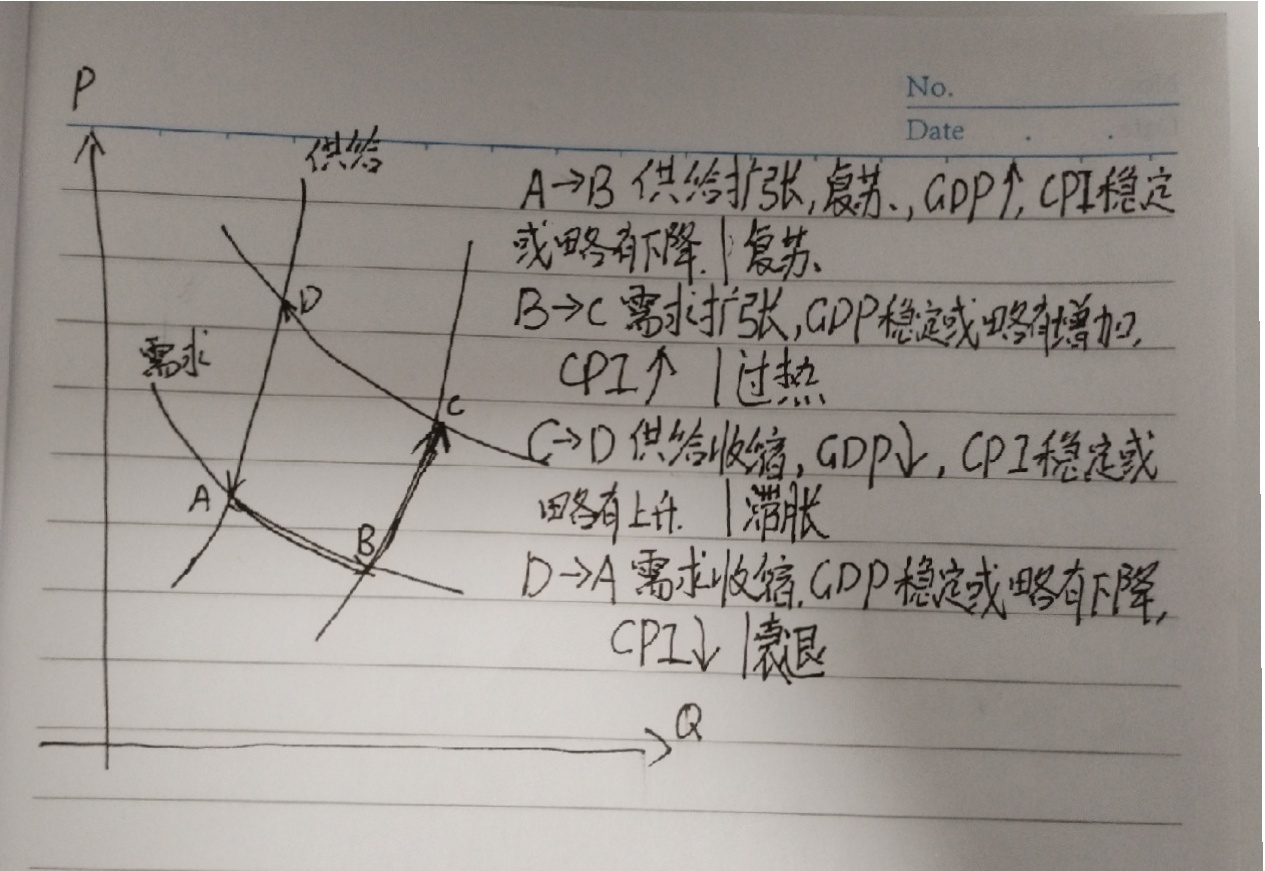 P
No.
Date . .
供给
A→B 供给扩张,复苏、,GDP↑,CPI稳定
或略有下降.|复苏、
D
B→C 需求扩张,GDP稳定或略有增加,
需求
CPI↑ |过热
C
C→D 供给收缩,GDP↓,CPI稳定或
A
略有上升. |滞胀
B
D→A 需求收缩.GDP稳定或略有下降,
CPI↓ |衰退
Q